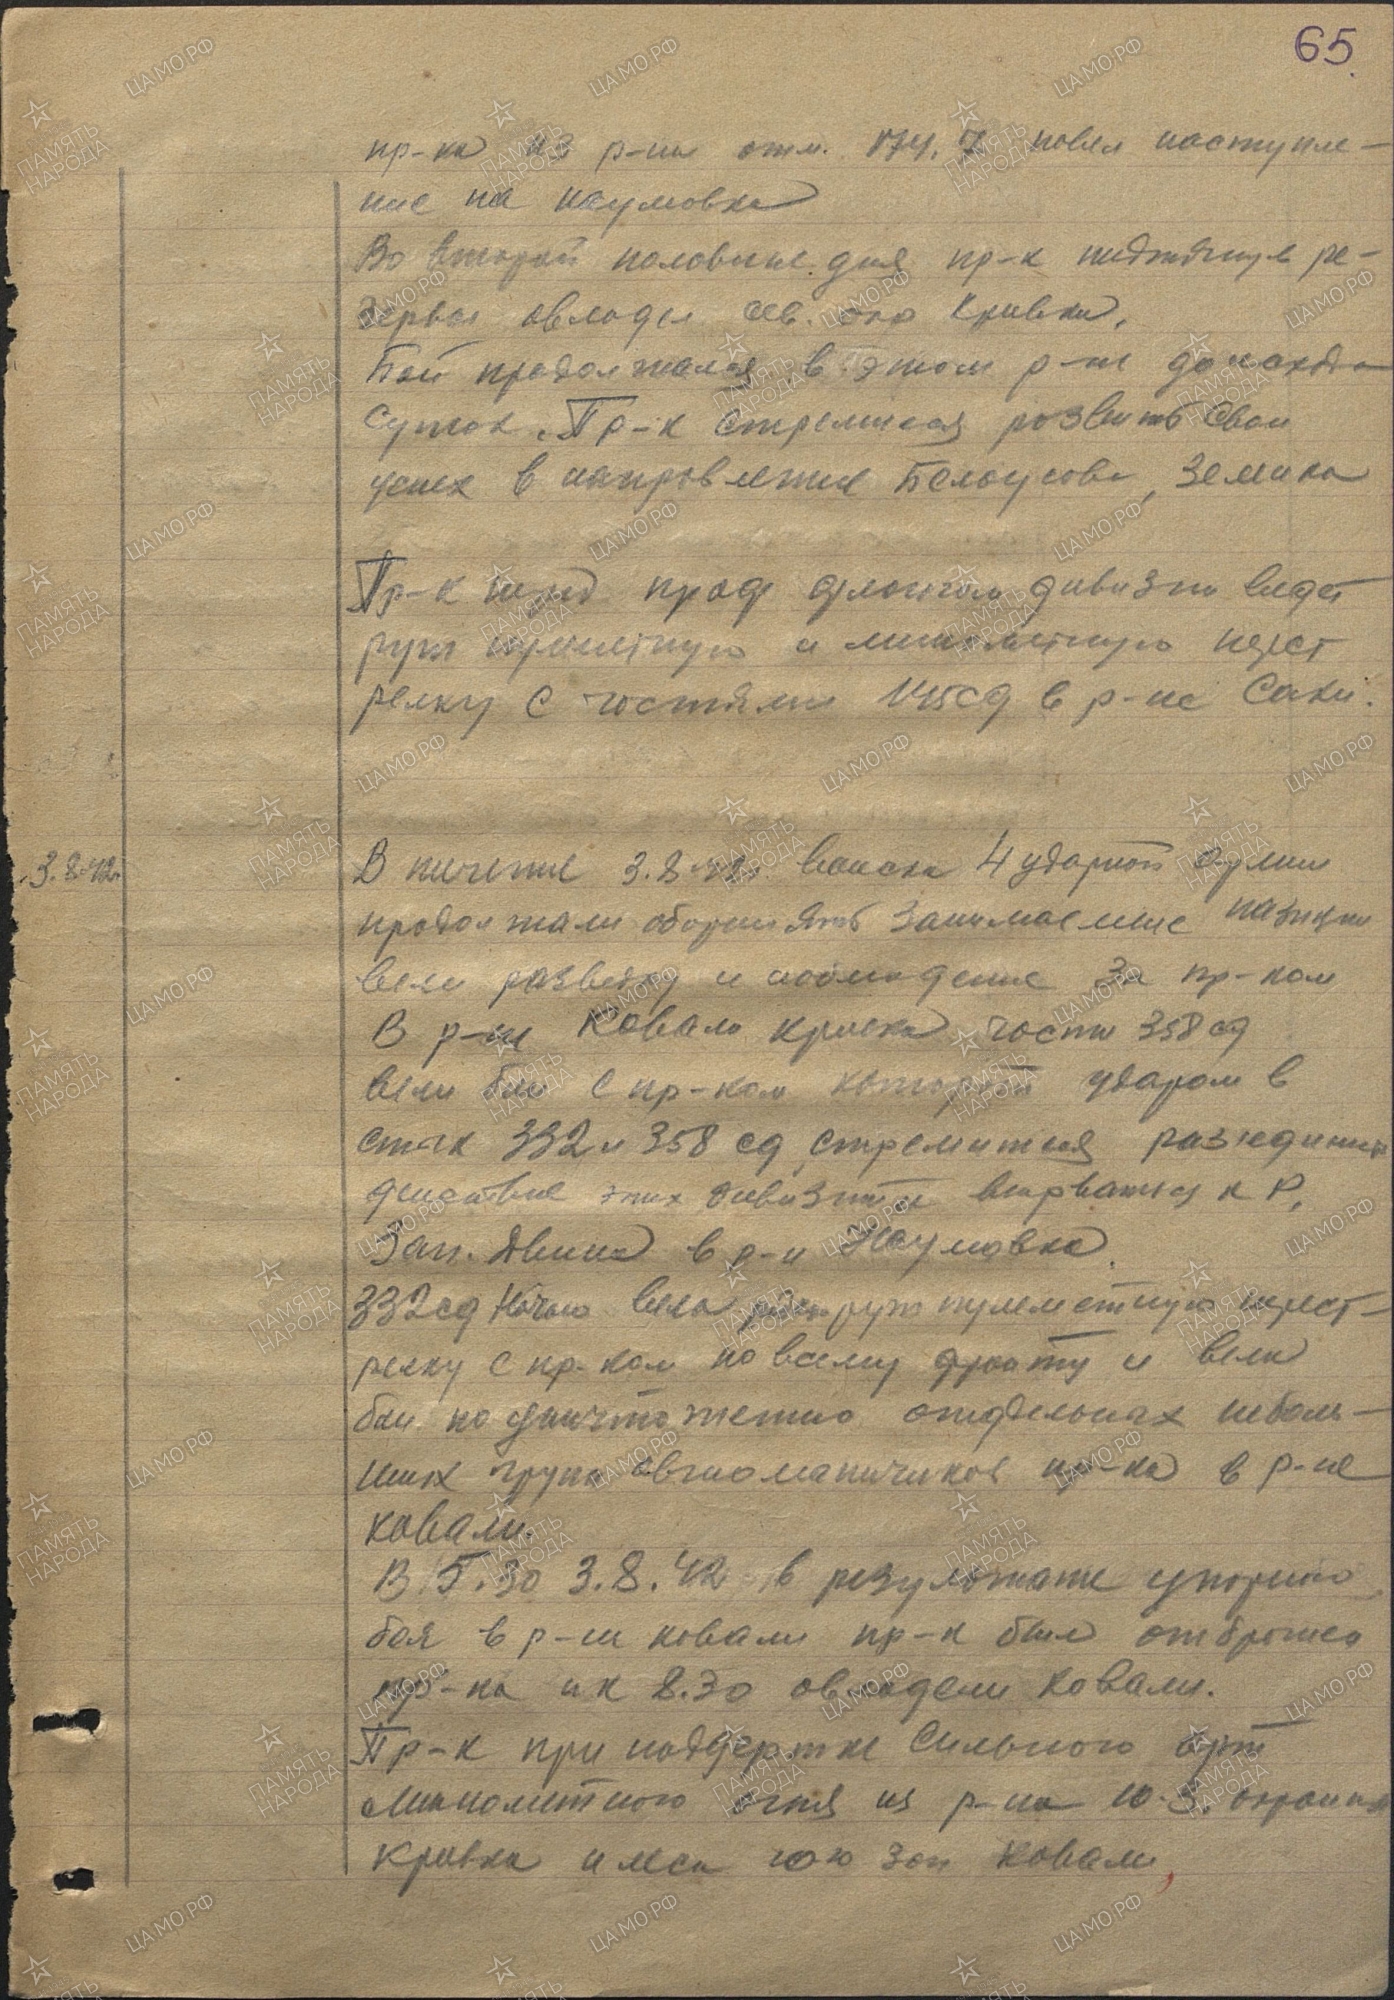 65
пр-ка из р-на отм. 174.7 повел наступле-
ние на Наумовка
Во второй половине дня пр-к подтянув ре-
зервы овладел сев. окр Кривки.
Бой продолжался в этом р-не до исхода
суток. Пр-к стремился розвить свой
успех в направлении Белоусова, Земика
Пр-к перед прав флангом дивизии ведет
руж пулеметную и минометную перест
релку с частями 145сд в р-не Саки.
3.8.42г.
В течение 3.8.42г. войска 4 ударной армии
продолжали оборонять занимаемые позиции
вели разветку и наблюдение за пр-ком
В р-не Ковали Кривка части 358 сд
вели бои с пр-ком который ударом в
стык 332 и 358 сд стремится разъединить
действие этих дивизий ворватся к р.
Зап. Двина в р-н Наумовка.
332сд ночью вела руж пулеметную перест-
релку с пр-ком по всему фронту и вела
бои по уничтожению отдельных неболь-
ших груп автоматчиков пр-ка в р-не
Ковали.
В 5.30 3.8.42 в результате упорного
боя в р-не Ковали пр-к был отброшен
пр-ка и к 8.30 овладели Ковали.
Пр-к при поддержке сильного арт
минометного огня из р-на ю.з. окраины
Кривка и леса юго зап Ковали,
ЦАМО.РФ
ПАМЯТЬ
НАРОДА